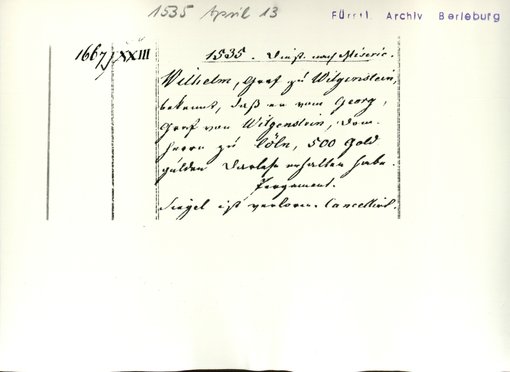 1535 April 13
Fürstl. Archiv Berleburg
1667) XXIII
1535. Dinst. nach Miseric.
Wilhelm, Graf zu Witgenstein,
bekennt, daß er vom Georg,
Graf von Witgenstein, Dom-
herrn zu Cöln, 500 Gold
gülden Darlehn erhalten habe.
Pergament.
Siegel ist verloren. Cancellirt.